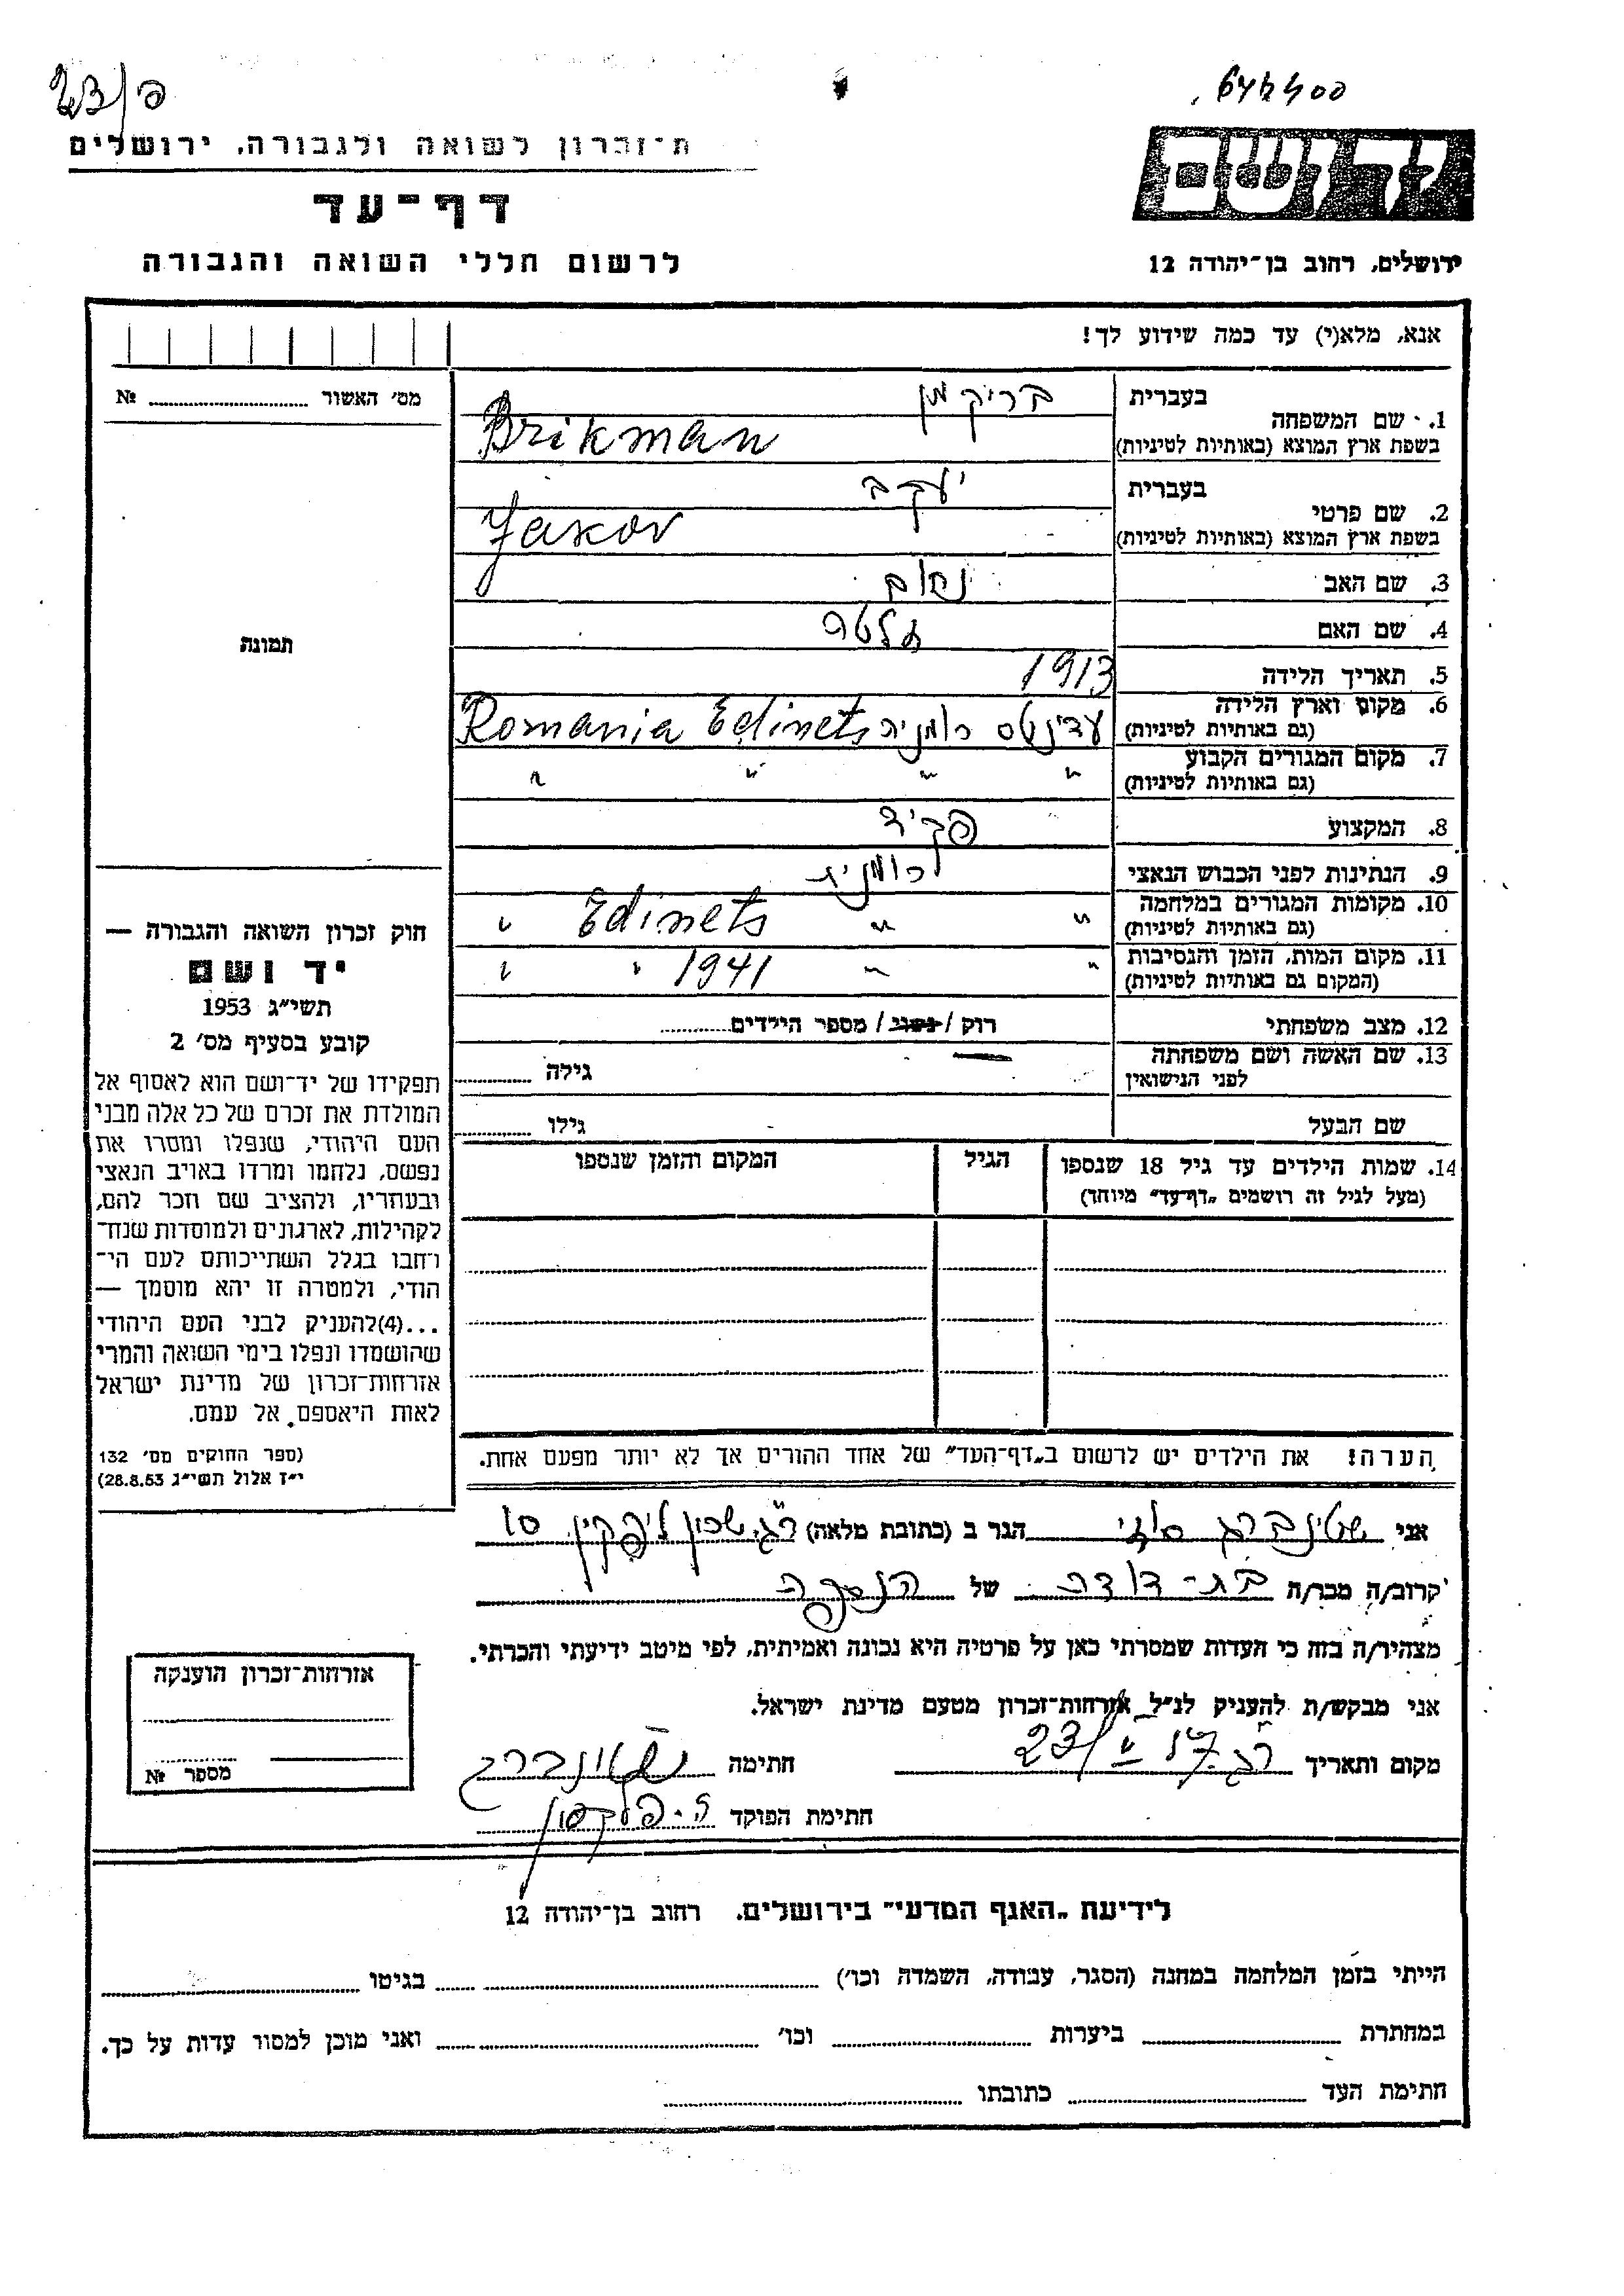 23/פ
ת־זכרון לשואה ולגבורה, ירושלים
דף־עד
לרשום חללי השואה והגבורה
ושם
ירושלים, רחוב בן־יהודה 12
אנא, מלא(י) עד כמה שידוע לך!
מס׳ האשור № ........
1. שם המשפחה
בעברית בריקמן
בשפת ארץ המוצא (באותיות לטיניות) Brikman
2. שם פרטי
בעברית יעקב
בשפת ארץ המוצא (באותיות לטיניות) Jakov
3. שם האב נחום
4. שם האם
5. תאריך הלידה 1913
6. מקום וארץ הלידה
(גם באותיות לטיניות) עדינטס רומניה Romania Edinets
7. מקום המגורים הקבוע
(גם באותיות לטיניות) " " " "
8. המקצוע פקיד
9. הנתינות לפני הכבוש הנאצי רומנית
10. מקומות המגורים במלחמה
(גם באותיות לטיניות) " " Edinets "
11. מקום המות, הזמן והנסיבות
(המקום גם באותיות לטיניות) " " 1941 " "
12. מצב משפחתי רוק / נשוי / מספר הילדים........
13. שם האשה ושם משפחתה
לפני הנישואין
גילה ........
שם הבעל גילו ........
14. שמות הילדים עד גיל 18 שנספו
(מעל לגיל זה רושמים „דף־עד״ מיוחד)
הגיל
המקום והזמן שנספו
תמונה
חוק זכרון השואה והגבורה —
יד ושם
תשי״ג 1953
קובע בסעיף מס׳ 2
תפקידו של יד־ושם הוא לאסוף אל
המולדת את זכרם של כל אלה מבני
העם היהודי, שנפלו ומסרו את
נפשם, נלחמו ומרדו באויב הנאצי
ובעוזריו, ולהציב שם וזכר להם,
לקהילות, לארגונים ולמוסדות שנח־
רחבו בגלל השתייכותם לעם הי־
הודי, ולמטרה זו יהא מוסמך —
...(4)להעניק לבני העם היהודי
שהושמדו ונפלו בימי השואה והמרי
אזרחות־זכרון של מדינת ישראל
לאות היאספם אל עמם.
(ספר החוקים מס׳ 132
י״ז אלול תשי״ג 28.8.53)
הערה! את הילדים יש לרשום ב„דף־העד״ של אחד ההורים אך לא יותר מפעם אחת.
אני שטינברג הגר ב (כתובת מלאה) ר״ג שכון ליפקין 10
קרוב/ה מכר/ה בת-דודה של הנספה
מצהיר/ה בזה כי העדות שמסרתי כאן על פרטיה היא נכונה ואמיתית, לפי מיטב ידיעתי והכרתי.
אני מבקש/ת להעניק לנ״ל אזרחות־זכרון מטעם מדינת ישראל.
מקום ותאריך ר״ג 23/ חתימה שטינברג
חתימת הפוקד
אזרחות־זכרון הוענקה
מספר №
לידיעת „האגף המדעי״ בירושלים. רחוב בן־יהודה 12
הייתי בזמן המלחמה במחנה (הסגר, עבודה, השמדה וכו׳) ........ בגיטו ........
במחתרת ........ ביערות ........ וכו׳ ........ ואני מוכן למסור עדות על כך.
חתימת העד ........ כתובתו ........